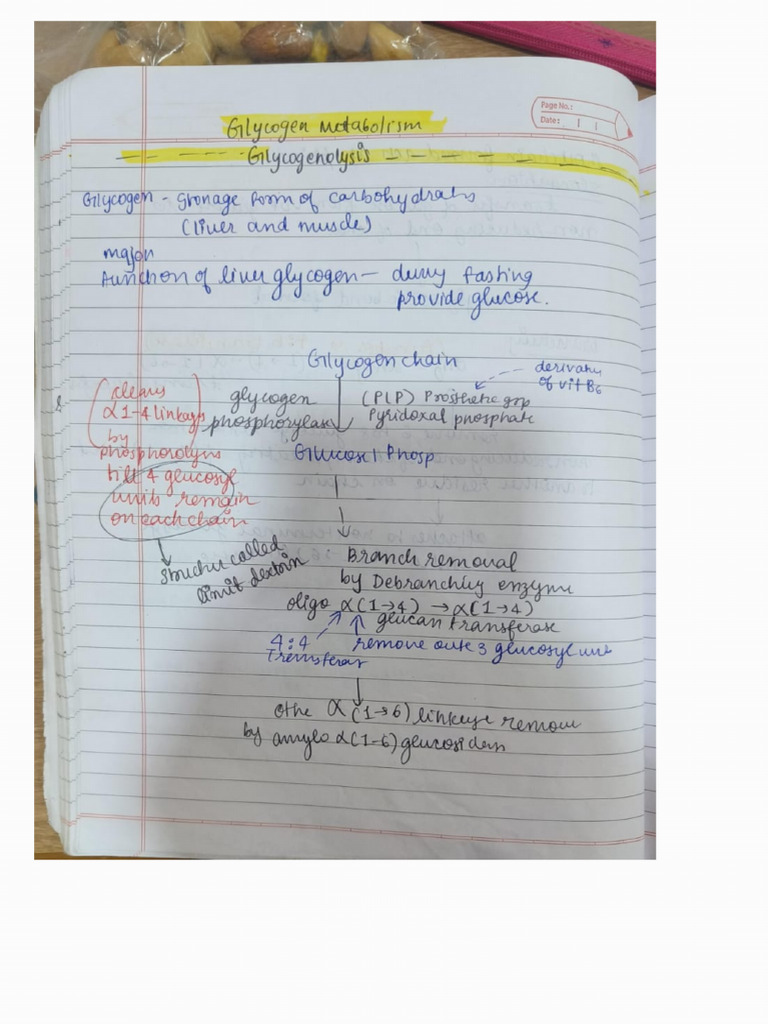 Page No.:
Date:
Glycogen Metabolism
Glycogenolysis
Glycogen - Storage form of carbohydrats
(liver and muscle)
major
function of liver glycogen — during fasting
provide glucose.
Glycogen chain
derivative
of vit B6
cleaves
α1-4 linkages
by
phosphorolysis
till 4 glucosyl
units remain
on each chain
glycogen
phosphorylase
(PLP) Prosthetic grp
Pyridoxal phosphate
Glucose 1 Phosp
structure called
limit dextrin
Branch removal
by Debranching enzyme
oligo α(1→4) → α(1→4)
glucan transferase
4:4
Transferase
remove oute 3 glucosyl unit
othe α(1→6) linkage remove
by amylo α(1-6) glucosidase